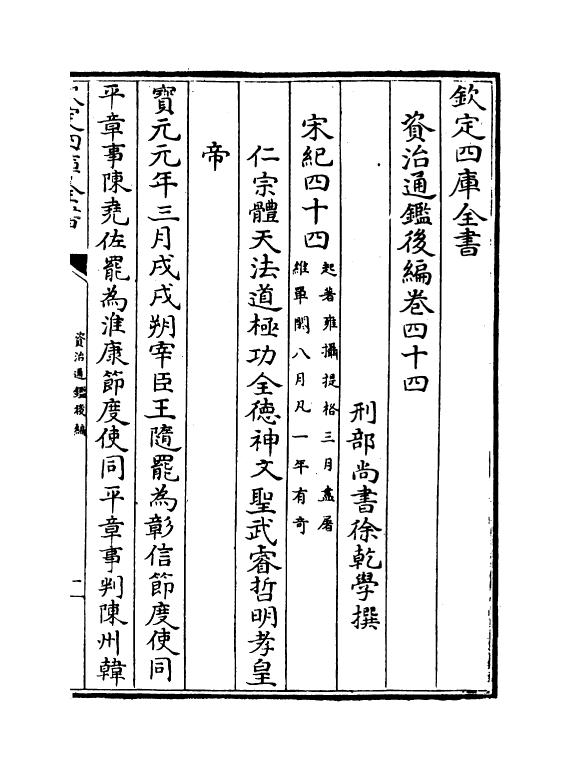 欽定四庫全書
資治通鑑後編卷四十四
刑部尚書徐乾學撰
宋紀四十四起著雍攝提格三月盡屠維單閼八月凡一年有竒
仁宗體天法道極功全德神文聖武睿哲明孝皇
帝
寶元元年三月戊戌朔宰臣王隨罷為彰信節度使同
平章事陳堯佐罷為淮康節度使同平章事判陳州韓
欽定四庫全書
資治通鑑後編